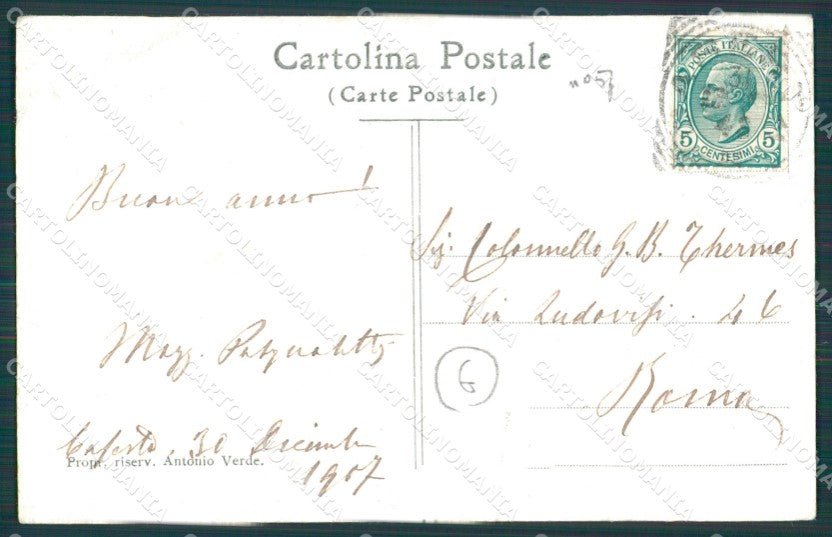 Cartolina Postale
(Carte Postale)
n05
POSTE ITALIANE
5 5
CENTESIMI
Buon anno!
Sig. Colonnello G. B. Thermes
Via Ludovisi. 46
Roma
Magg. Pasqualetti
6
Caserta, 30 Dicembre
1907
Propr. riserv. Antonio Verde.
CARTOLINOMANIA